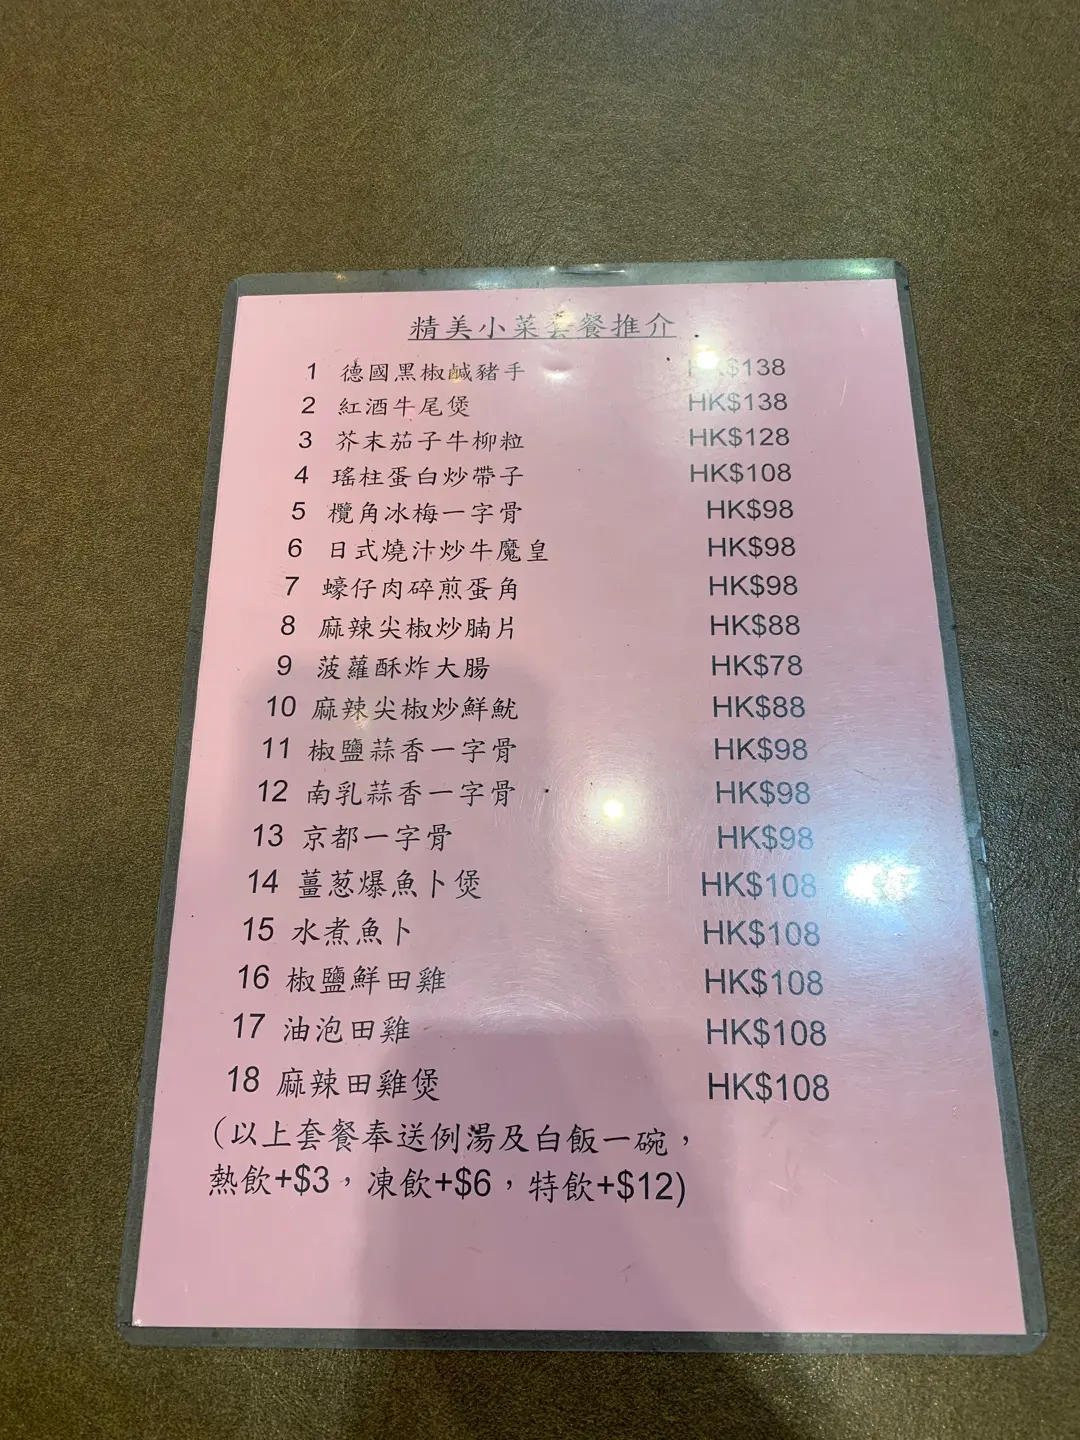 精美小菜套餐推介
1 德國黑椒鹹豬手 HK$138
2 紅酒牛尾煲 HK$138
3 芥末茄子牛柳粒 HK$128
4 瑤柱蛋白炒帶子 HK$108
5 欖角冰梅一字骨 HK$98
6 日式燒汁炒牛魔皇 HK$98
7 蠔仔肉碎煎蛋角 HK$98
8 麻辣尖椒炒腩片 HK$88
9 菠蘿酥炸大腸 HK$78
10 麻辣尖椒炒鮮魷 HK$88
11 椒鹽蒜香一字骨 HK$98
12 南乳蒜香一字骨 HK$98
13 京都一字骨 HK$98
14 薑葱爆魚卜煲 HK$108
15 水煮魚卜 HK$108
16 椒鹽鮮田雞 HK$108
17 油泡田雞 HK$108
18 麻辣田雞煲 HK$108
（以上套餐奉送例湯及白飯一碗，
熱飲+$3，凍飲+$6，特飲+$12)